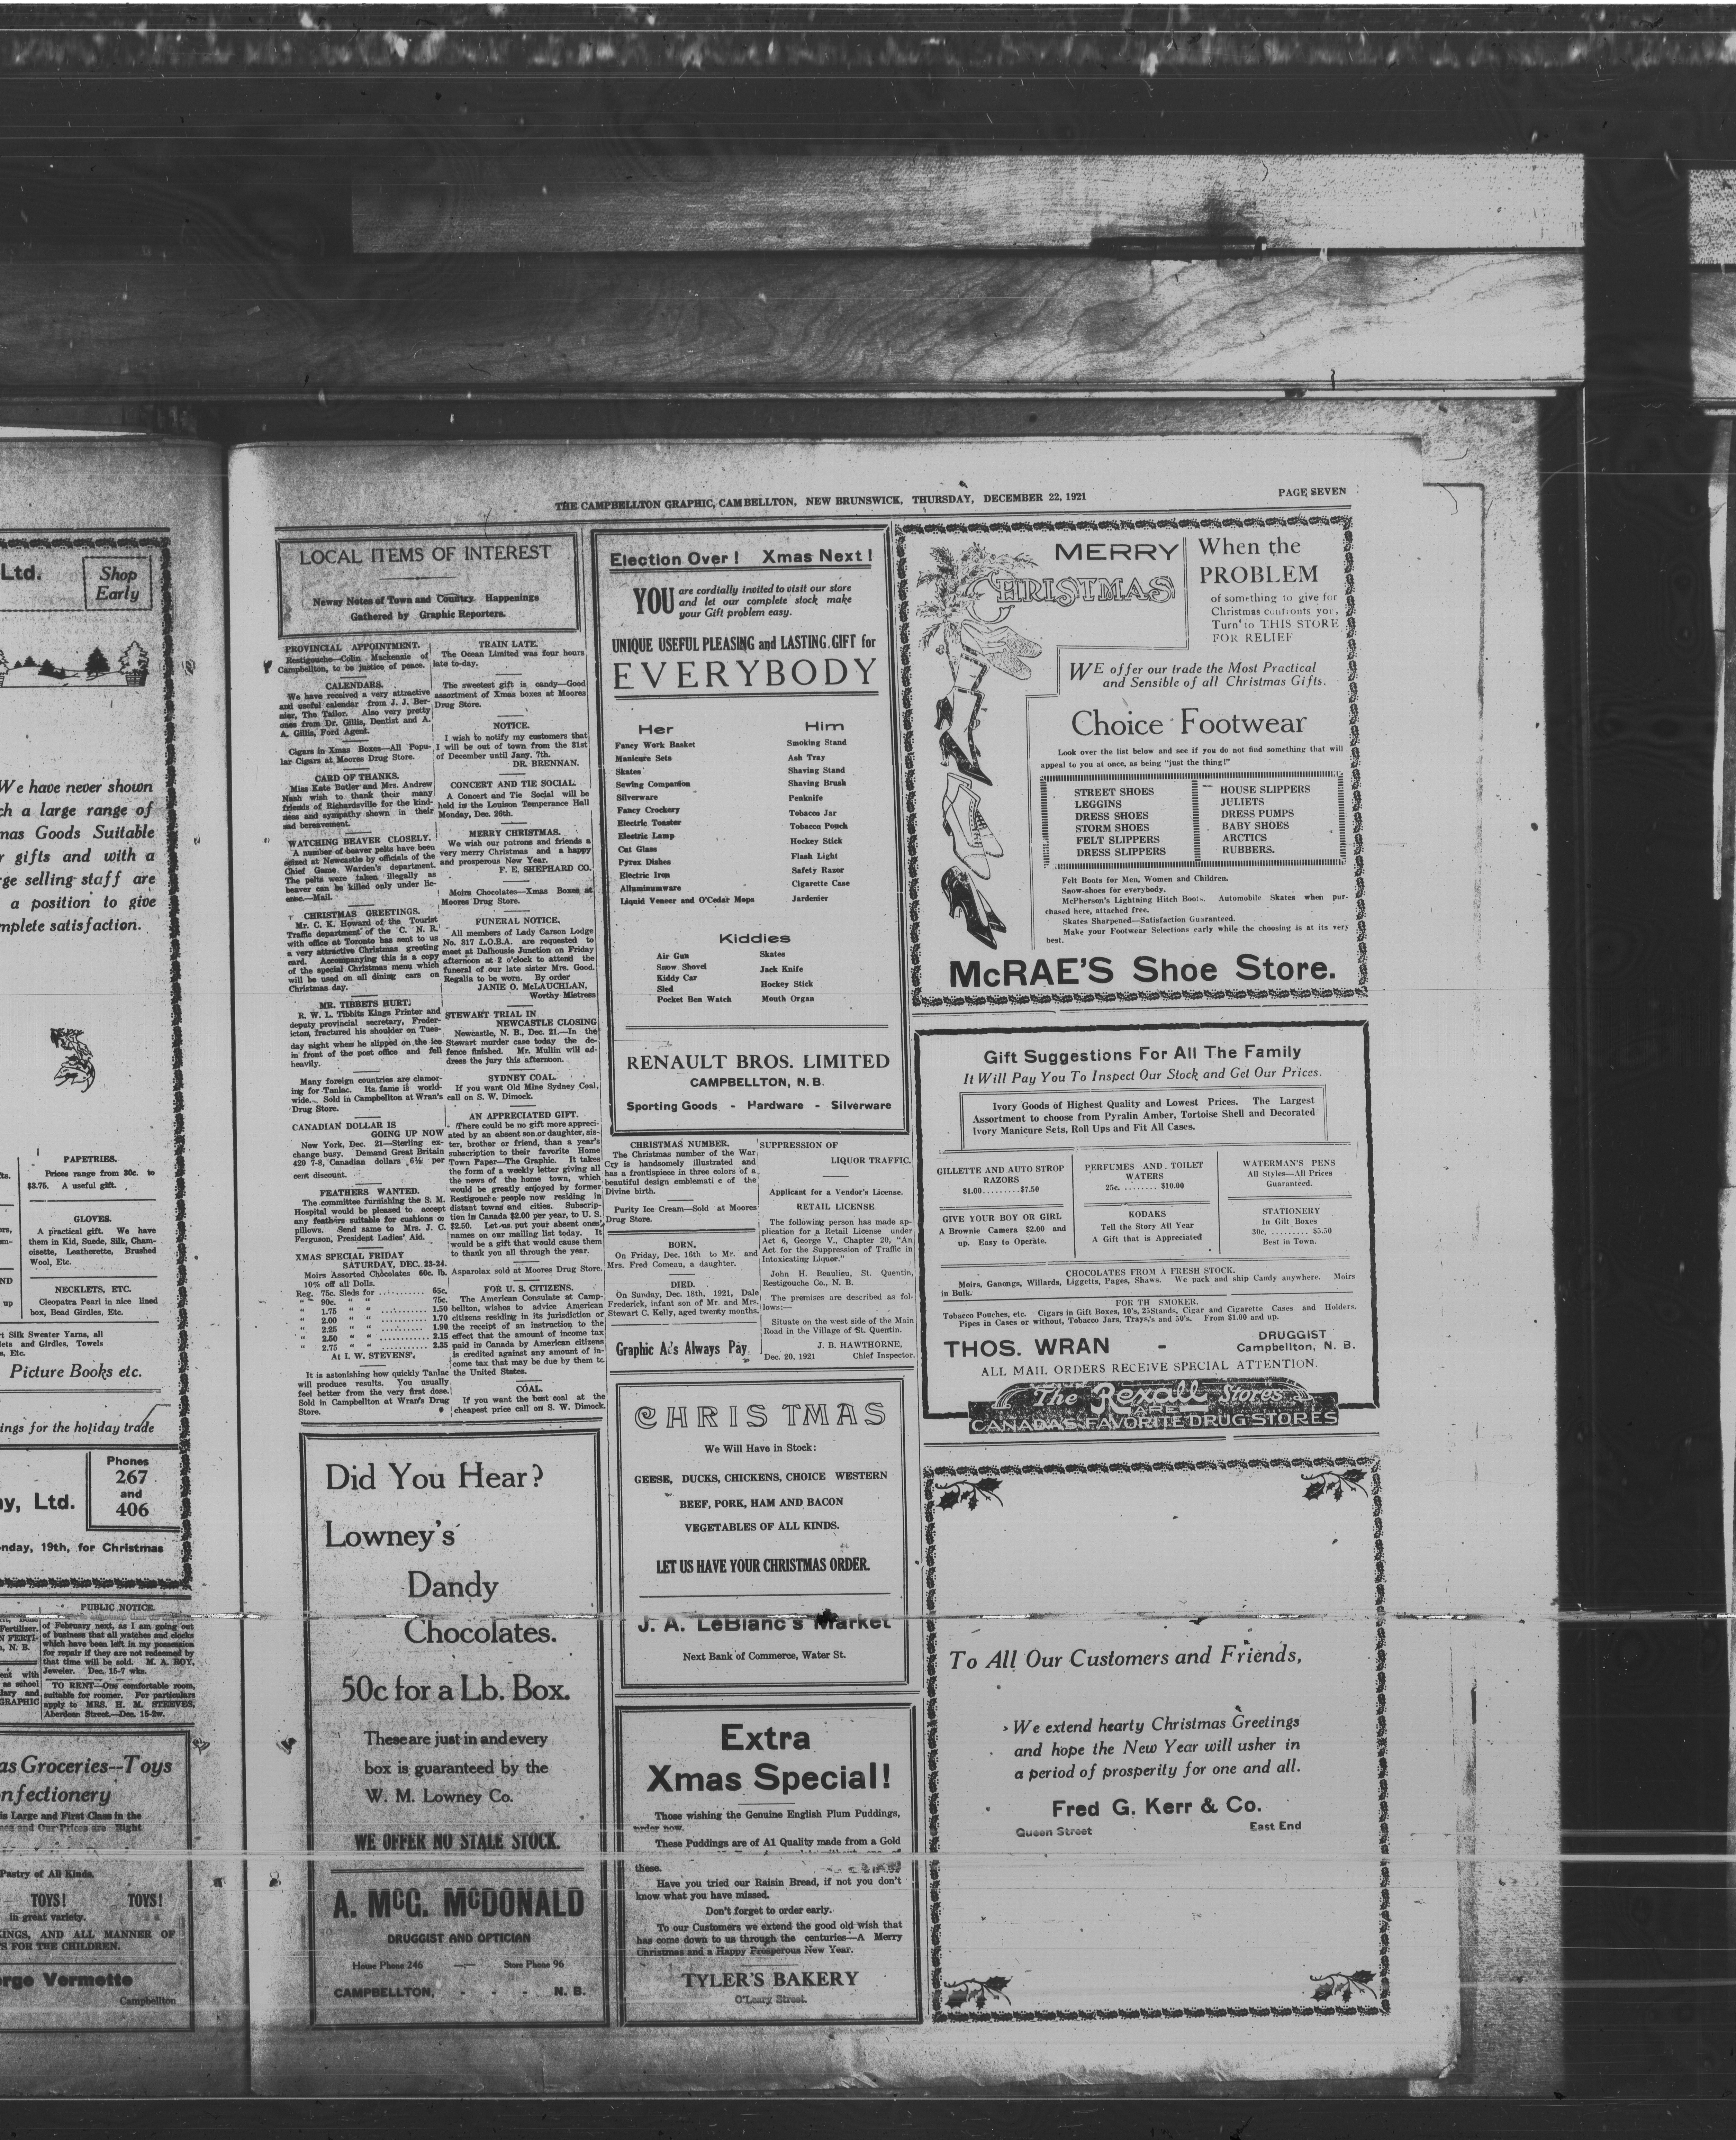 Ltd.
Shop
Early
We have never shown
ch a large range of
mas Goods Suitable
r gifts and with a
rge selling staff are
a position to give
mplete satisfaction.
PAPETRIES.
Prices range from 30c. to
$3.75. A useful gift.
GLOVES.
A practical gift. We have
them in Kid, Suede, Silk, Cham-
oisette, Leatherette, Brushed
Wool, Etc.
NECKLETS, ETC.
Cleopatra Pearl in nice lined
box, Bead Girdles, Etc.
Silk Sweater Yarns, all
lets and Girdles, Towels
s, Etc.
Picture Books etc.
ings for the holiday trade
Phones
267
and
406
ny, Ltd.
nday, 19th, for Christmas
PUBLIC NOTICE.
of February next, as I am going out
of business that all watches and clocks
which have been left in my possession
for repair if they are not redeemed by
that time will be sold. M. A. ROY,
Jeweler. Dec. 15-7 wks.
TO RENT—One comfortable room,
suitable for roomer. For particulars
apply to MRS. H. M. STEEVES,
Aberdeen Street.—Dec. 15-2w.
as Groceries--Toys
nfectionery
is Large and First Class in the
and Our Prices are Right
Pastry of All Kinds.
TOYS! TOYS!
in great variety.
KINGS, AND ALL MANNER OF
S FOR THE CHILDREN.
orge Vermette
Campbellton
THE CAMPBELLTON GRAPHIC, CAMBELLTON, NEW BRUNSWICK, THURSDAY, DECEMBER 22, 1921
PAGE SEVEN
LOCAL ITEMS OF INTEREST
Newsy Notes of Town and Country Happenings
Gathered by Graphic Reporters.
PROVINCIAL APPOINTMENT.
Restigouche—Colin Mackenzie of
Campbellton, to be justice of peace.
CALENDARS.
We have received a very attractive
and useful calendar from J. J. Ber-
nier, The Tailor. Also very pretty
ones from Dr. Gillis, Dentist and A.
A. Gillis, Ford Agent.
Cigars in Xmas Boxes—All Popu-
lar Cigars at Moores Drug Store.
CARD OF THANKS.
Miss Kate Butler and Mrs. Andrew
Nash wish to thank their many
friends of Richardsville for the kind-
ness and sympathy shown in their
sad bereavement.
WATCHING BEAVER CLOSELY.
A number of beaver pelts have been
seized at Newcastle by officials of the
Chief Game Warden's department.
The pelts were taken illegally as
beaver can be killed only under lic-
ense.—Mail.
CHRISTMAS GREETINGS.
Mr. C. K. Howard of the Tourist
Traffic department of the C. N. R.
with office at Toronto has sent to us
a very attractive Christmas greeting
card. Accompanying this is a copy
of the special Christmas menu which
will be used on all dining cars on
Christmas day.
MR. TIBBETS HURT.
R. W. L. Tibbits Kings Printer and
deputy provincial secretary, Freder-
icton, fractured his shoulder on Tues-
day night when he slipped on the ice
in front of the post office and fell
heavily.
Many foreign countries are clamor-
ing for Tanlac. Its fame is world-
wide.. Sold in Campbellton at Wran's
Drug Store.
CANADIAN DOLLAR IS
GOING UP NOW
New York, Dec. 21—Sterling ex-
change busy. Demand Great Britain
420 7-8, Canadian dollars 6½ per
cent discount.
FEATHERS WANTED.
The committee furnishing the S. M.
Hospital would be pleased to accept
any feathers suitable for cushions or
pillows. Send same to Mrs. J. C.
Ferguson, President Ladies' Aid.
XMAS SPECIAL FRIDAY
SATURDAY, DEC. 23-24.
Moirs Assorted Chocolates 60c. lb.
10% off all Dolls.
Reg. 75c. Sleds for ......... 65c.
" 90c. " " 75c.
" 1.75 " " ........... 1.50
" 2.00 " " ........... 1.70
" 2.25 " " ........... 1.90
" 2.50 " " ........... 2.15
" 2.75 " " ........... 2.35
At I. W. STEVENS'.
It is astonishing how quickly Tanlac
will produce results. You usually
feel better from the very first dose.
Sold in Campbellton at Wran's Drug
Store.
TRAIN LATE.
The Ocean Limited was four hours
late to-day.
The sweetest gift is candy—Good
assortment of Xmas boxes at Moores
Drug Store.
NOTICE.
I wish to notify my customers that
I will be out of town from the 31st
of December until Jany. 7th.
DR. BRENNAN.
CONCERT AND TIE SOCIAL.
A Concert and Tie Social will be
held in the Louison Temperance Hall
Monday, Dec. 26th.
MERRY CHRISTMAS.
We wish our patrons and friends a
very merry Christmas and a happy
and prosperous New Year.
F. E. SHEPHARD CO.
Moirs Chocolates—Xmas Boxes at
Moores Drug Store.
FUNERAL NOTICE.
All members of Lady Carson Lodge
No. 317 L.O.B.A. are requested to
meet at Dalhousie Junction on Friday
afternoon at 2 o'clock to attend the
funeral of our late sister Mrs. Good.
Regalia to be worn. By order
JANIE O. McLAUCHLAN,
Worthy Mistress
STEWART TRIAL IN
NEWCASTLE CLOSING
Newcastle, N. B., Dec. 21.—In the
Stewart murder case today the de-
fence finished. Mr. Mullin will ad-
dress the jury this afternoon.
SYDNEY COAL.
If you want Old Mine Sydney Coal,
call on S. W. Dimock.
AN APPRECIATED GIFT.
There could be no gift more appreci-
ated by an absent son or daughter, sis-
ter, brother or friend, than a year's
subscription to their favorite Home
Town Paper—The Graphic. It takes
the form of a weekly letter giving all
the news of the home town, which
would be greatly enjoyed by former
Restigouche people now residing in
distant towns and cities. Subscrip-
tion in Canada $2.00 per year, to U. S.
$2.50. Let us put your absent ones'
names on our mailing list today. It
would be a gift that would cause them
to thank you all through the year.
Asparolax sold at Moores Drug Store.
FOR U. S. CITIZENS.
The American Consulate at Camp-
bellton, wishes to advice American
citizens residing in its jurisdiction of
the receipt of an instruction to the
effect that the amount of income tax
paid in Canada by American citizens
is credited against any amount of in-
come tax that may be due by them to
the United States.
COAL.
If you want the best coal at the
cheapest price call on S. W. Dimock.
Did You Hear?
Lowney's
Dandy
Chocolates.
50c for a Lb. Box.
These are just in and every
box is guaranteed by the
W. M. Lowney Co.
WE OFFER NO STALE STOCK.
A. McG. McDONALD
DRUGGIST AND OPTICIAN
House Phone 246 — Store Phone 96
CAMPBELLTON, - - - N. B.
Election Over! Xmas Next!
YOU are cordially invited to visit our store
and let our complete stock make
your Gift problem easy.
UNIQUE USEFUL PLEASING and LASTING GIFT for
EVERYBODY
Her
Fancy Work Basket
Manicure Sets
Skates
Sewing Companion
Silverware
Fancy Crockery
Electric Toaster
Electric Lamp
Cut Glass
Pyrex Dishes
Electric Iron
Alluminumware
Liquid Veneer and O'Cedar Mops
Him
Smoking Stand
Ash Tray
Shaving Stand
Shaving Brush
Penknife
Tobacco Jar
Tobacco Pouch
Hockey Stick
Flash Light
Safety Razor
Cigarette Case
Jardenier
Kiddies
Air Gun
Snow Shovel
Kiddy Car
Sled
Pocket Ben Watch
Skates
Jack Knife
Hockey Stick
Mouth Organ
RENAULT BROS. LIMITED
CAMPBELLTON, N. B.
Sporting Goods - Hardware - Silverware
CHRISTMAS NUMBER.
The Christmas number of the War
Cry is handsomely illustrated and
has a frontispiece in three colors of a
beautiful design emblemati c of the
Divine birth.
Purity Ice Cream—Sold at Moores
Drug Store.
BORN.
On Friday, Dec. 16th to Mr. and
Mrs. Fred Comeau, a daughter.
DIED.
On Sunday, Dec. 18th, 1921, Dale
Frederick, infant son of Mr. and Mrs.
Stewart C. Kelly, aged twenty months.
Graphic Ads Always Pay.
SUPPRESSION OF
LIQUOR TRAFFIC.
Applicant for a Vendor's License.
RETAIL LICENSE
The following person has made ap-
plication for a Retail License under
Act 6, George V., Chapter 20, "An
Act for the Suppression of Traffic in
Intoxicating Liquor."
John H. Beaulieu, St. Quentin,
Restigouche Co., N. B.
The premises are described as fol-
lows:—
Situate on the west side of the Main
Road in the Village of St. Quentin.
J. B. HAWTHORNE,
Dec. 20, 1921 Chief Inspector.
CHRISTMAS
We Will Have in Stock:
GEESE, DUCKS, CHICKENS, CHOICE WESTERN
BEEF, PORK, HAM AND BACON
VEGETABLES OF ALL KINDS.
LET US HAVE YOUR CHRISTMAS ORDER.
J. A. LeBlanc's Market
Next Bank of Commerce, Water St.
Extra
Xmas Special!
Those wishing the Genuine English Plum Puddings,
order now.
These Puddings are of A1 Quality made from a Gold
these.
Have you tried our Raisin Bread, if not you don't
know what you have missed.
Don't forget to order early.
To our Customers we extend the good old wish that
has come down to us through the centuries—A Merry
Christmas and a Happy Prosperous New Year.
TYLER'S BAKERY
O'Leary Street.
MERRY
CHRISTMAS
When the
PROBLEM
of something to give for
Christmas confronts you,
Turn to THIS STORE
FOR RELIEF
WE offer our trade the Most Practical
and Sensible of all Christmas Gifts.
Choice Footwear
Look over the list below and see if you do not find something that will
appeal to you at once, as being "just the thing!"
STREET SHOES
LEGGINS
DRESS SHOES
STORM SHOES
FELT SLIPPERS
DRESS SLIPPERS
HOUSE SLIPPERS
JULIETS
DRESS PUMPS
BABY SHOES
ARCTICS
RUBBERS.
Felt Boots for Men, Women and Children.
Snow-shoes for everybody.
McPherson's Lightning Hitch Boots. Automobile Skates when pur-
chased here, attached free.
Skates Sharpened—Satisfaction Guaranteed.
Make your Footwear Selections early while the choosing is at its very
best.
McRAE'S Shoe Store.
Gift Suggestions For All The Family
It Will Pay You To Inspect Our Stock and Get Our Prices.
Ivory Goods of Highest Quality and Lowest Prices. The Largest
Assortment to choose from Pyralin Amber, Tortoise Shell and Decorated
Ivory Manicure Sets, Roll Ups and Fit All Cases.
GILLETTE AND AUTO STROP
RAZORS
$1.00.........$7.50
PERFUMES AND TOILET
WATERS
25c. ........ $10.00
WATERMAN'S PENS
All Styles—All Prices
Guaranteed.
GIVE YOUR BOY OR GIRL
A Brownie Camera $2.00 and
up. Easy to Operate.
KODAKS
Tell the Story All Year
A Gift that is Appreciated
STATIONERY
In Gilt Boxes
30c. ......... $5.50
Best in Town.
CHOCOLATES FROM A FRESH STOCK.
Moirs, Ganongs, Willards, Liggetts, Pages, Shaws. We pack and ship Candy anywhere. Moirs
in Bulk.
FOR TH SMOKER.
Tobacco Pouches, etc. Cigars in Gift Boxes, 10's, 25Stands, Cigar and Cigarette Cases and Holders.
Pipes in Cases or without, Tobacco Jars, Trays,'s and 50's. From $1.00 and up.
THOS. WRAN - DRUGGIST
Campbellton, N. B.
ALL MAIL ORDERS RECEIVE SPECIAL ATTENTION.
The Rexall Stores
ARE
CANADA'S FAVORITE DRUG STORES
To All Our Customers and Friends,
We extend hearty Christmas Greetings
and hope the New Year will usher in
a period of prosperity for one and all.
Fred G. Kerr & Co.
Queen Street East End